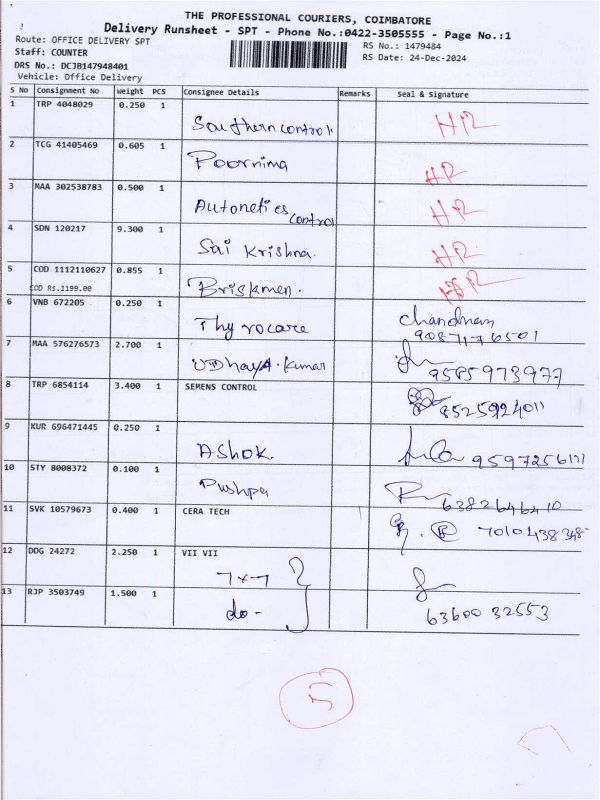 THE PROFESSIONAL COURIERS, COIMBATORE
Delivery Runsheet - SPT - Phone No.:0422-3505555 - Page No.:1
Route: OFFICE DELIVERY SPT
RS No.: 1479484
Staff: COUNTER
RS Date: 24-Dec-2024
DRS No.: DCJB147948401
Vehicle: Office Delivery
S No Consignment No Weight PCS Consignee Details Remarks Seal & Signature
1 TRP 4048029 0.250 1
Southern control HR
2 TCG 41405469 0.605 1
Poornima HR
3 MAA 302538783 0.500 1
Autonetics control HR
4 SDN 120217 9.300 1
Sai Krishna. HR
5 COD 1112110627 0.855 1
COD Rs.1199.00 Briskmen. HR
6 VNB 672205 0.250 1
Thyrocare
7 MAA 576276573 2.700 1
UDhayA.kumar 9585973977
8 TRP 6854114 3.400 1 SEMENS CONTROL
8525924011
9 KUR 696471445 0.250 1
AShok.
10 STY 8008372 0.100 1
Pushpa 6382646410
11 SVK 10579673 0.400 1 CERA TECH
7010438348
12 DDG 24272 2.250 1 VII VII
7x7
13 RJP 3503749 1.500 1
do - 63600 32553
5